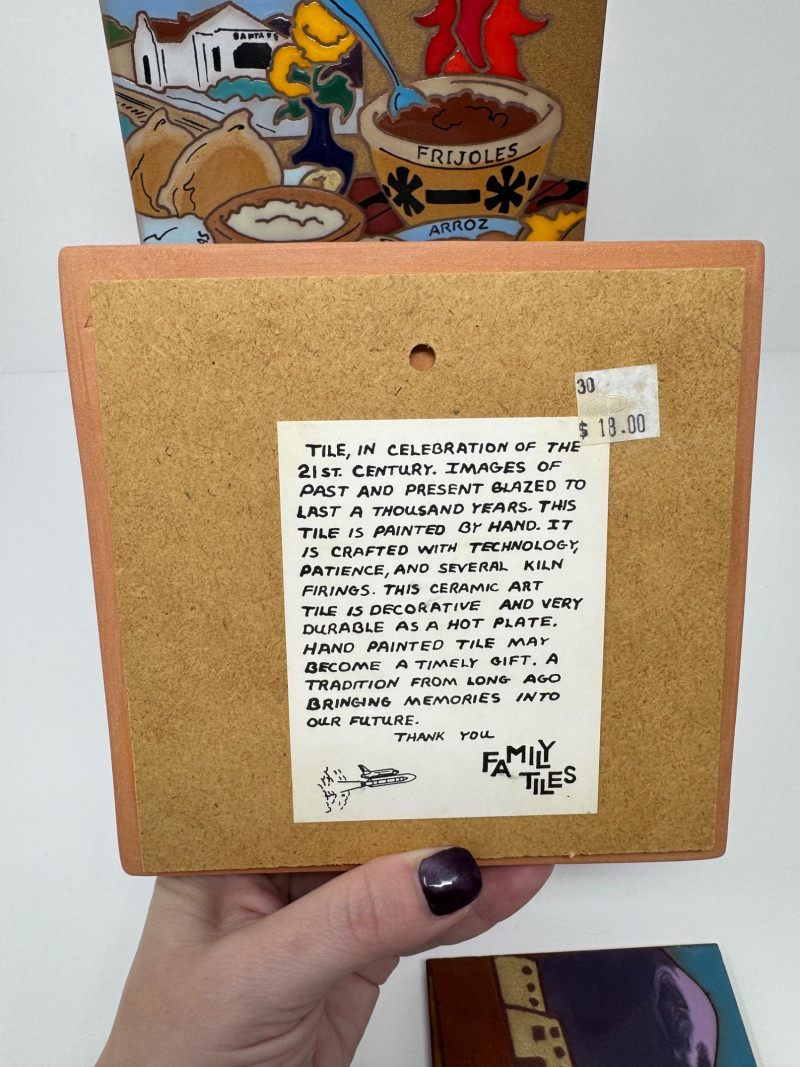 SANTA FE
FRIJOLES
ARROZ
30
$ 18.00
TILE, IN CELEBRATION OF THE
21ST. CENTURY. IMAGES OF
PAST AND PRESENT GLAZED TO
LAST A THOUSAND YEARS. THIS
TILE IS PAINTED BY HAND. IT
IS CRAFTED WITH TECHNOLOGY,
PATIENCE, AND SEVERAL KILN
FIRINGS. THIS CERAMIC ART
TILE IS DECORATIVE AND VERY
DURABLE AS A HOT PLATE.
HAND PAINTED TILE MAY
BECOME A TIMELY GIFT. A
TRADITION FROM LONG AGO
BRINGING MEMORIES INTO
OUR FUTURE.
THANK YOU
FAMILY
TILES